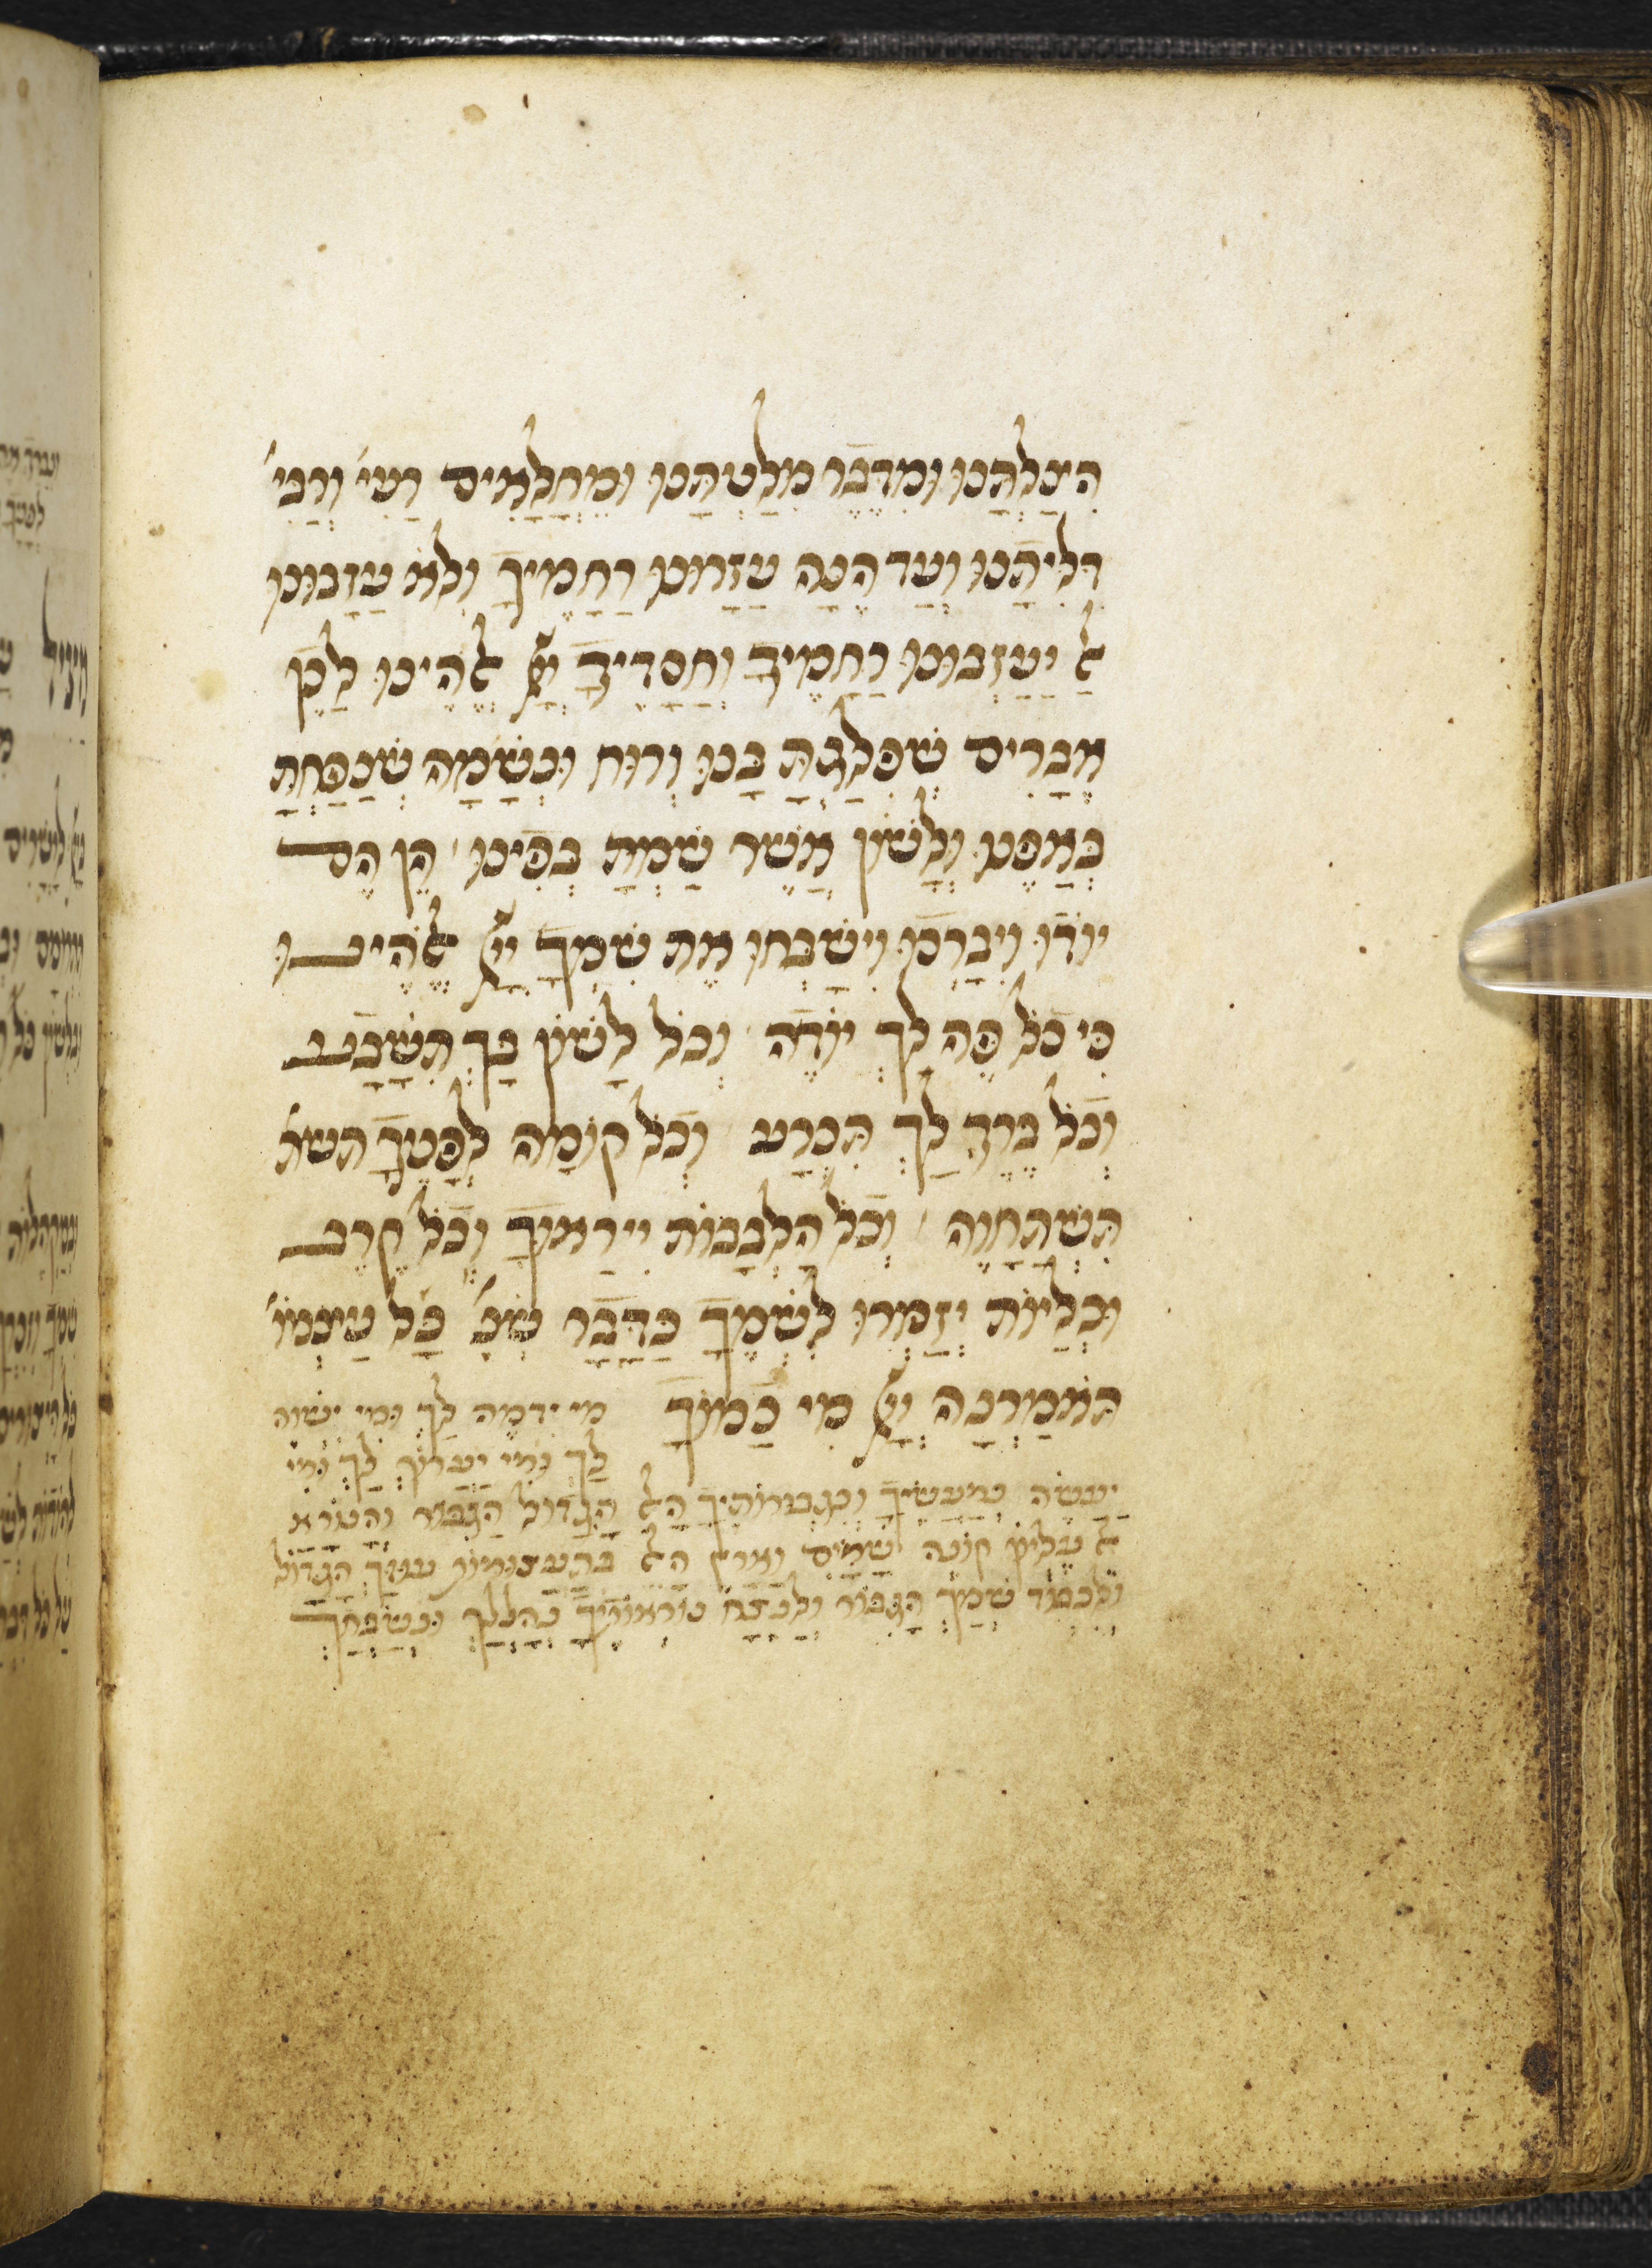 הִצַלְתָּנוּ וּמִדֶּבֶר מִלַּטְתָּנוּ וּמֵחֳלָאִים רַעִי׳ וְרַבִּי׳
דִּלִּיתָנוּ וְעַד הֵנָּה עֲזָרוּנוּ רַחֲמֶיךָ וְלֹא עֲזָבוּנוּ
אַל יַעַזְבוּנוּ רַחֲמֶיךָ וַחֲסָדֶיךָ יְיָ אֱלֹהֵינוּ לָכֵן
אֵבָרִים שֶׁפִּלַּגְתָּ בָּנוּ וְרוּחַ וּנְשָׁמָה שֶׁנָּפַחְתָּ
בְּאַפֵּנוּ וְלָשׁוֹן אֲשֶׁר שַׂמְתָּ בְּפִינוּ הֵן הֵם
יוֹדוּ וִיבָרְכוּ וִישַׁבְּחוּ אֶת שִׁמְךָ יְיָ אֱלֹהֵינוּ
כִּי כָל פֶּה לְךָ יוֹדֶה וְכָל לָשׁוֹן לְךָ תְשַׁבַּח
וְכָל בֶּרֶךְ לְךָ תִּכְרַע וְכָל קוֹמָה לְפָנֶיךָ תשת
תִּשְׁתַּחֲוֶה וְכָל הַלְּבָבוֹת יִירָאוּךָ וְכָל קֶרֶב
וּכְלָיוֹת יְזַמְּרוּ לִשְׁמֶךָ כַּדָּבָר שֶׁנֶּ׳ כָּל עַצְמוֹ׳
תֹּאמַרְנָה יְיָ מִי כָמוֹךָ מִי יִדְמֶה לָּךְ וּמִי יִשְׁוֶה
לָּךְ וּמִי יַעֲרוֹךְ לָךְ וּמִי
יַעֲשֶׂה כְמַעֲשֶׂיךָ וְכִגְבוּרוֹתֶיךָ הָאֵל הַגָּדוֹל הַגִּבּוֹר וְהַנּוֹרָא
אֵל עֶלְיוֹן קוֹנֵה שָׁמַיִם וָאָרֶץ הָאֵל בְּתַעֲצוּמוֹת עֻזֶּךָ הַגָּדוֹל
וּלְכְבוֹד שִׁמְךָ הַגִּבּוֹר וְלָנֶצַח נוֹרְאוֹתֶיךָ נְהַלֶּלְךָ וּנְשַׁבֵּחֲךָ